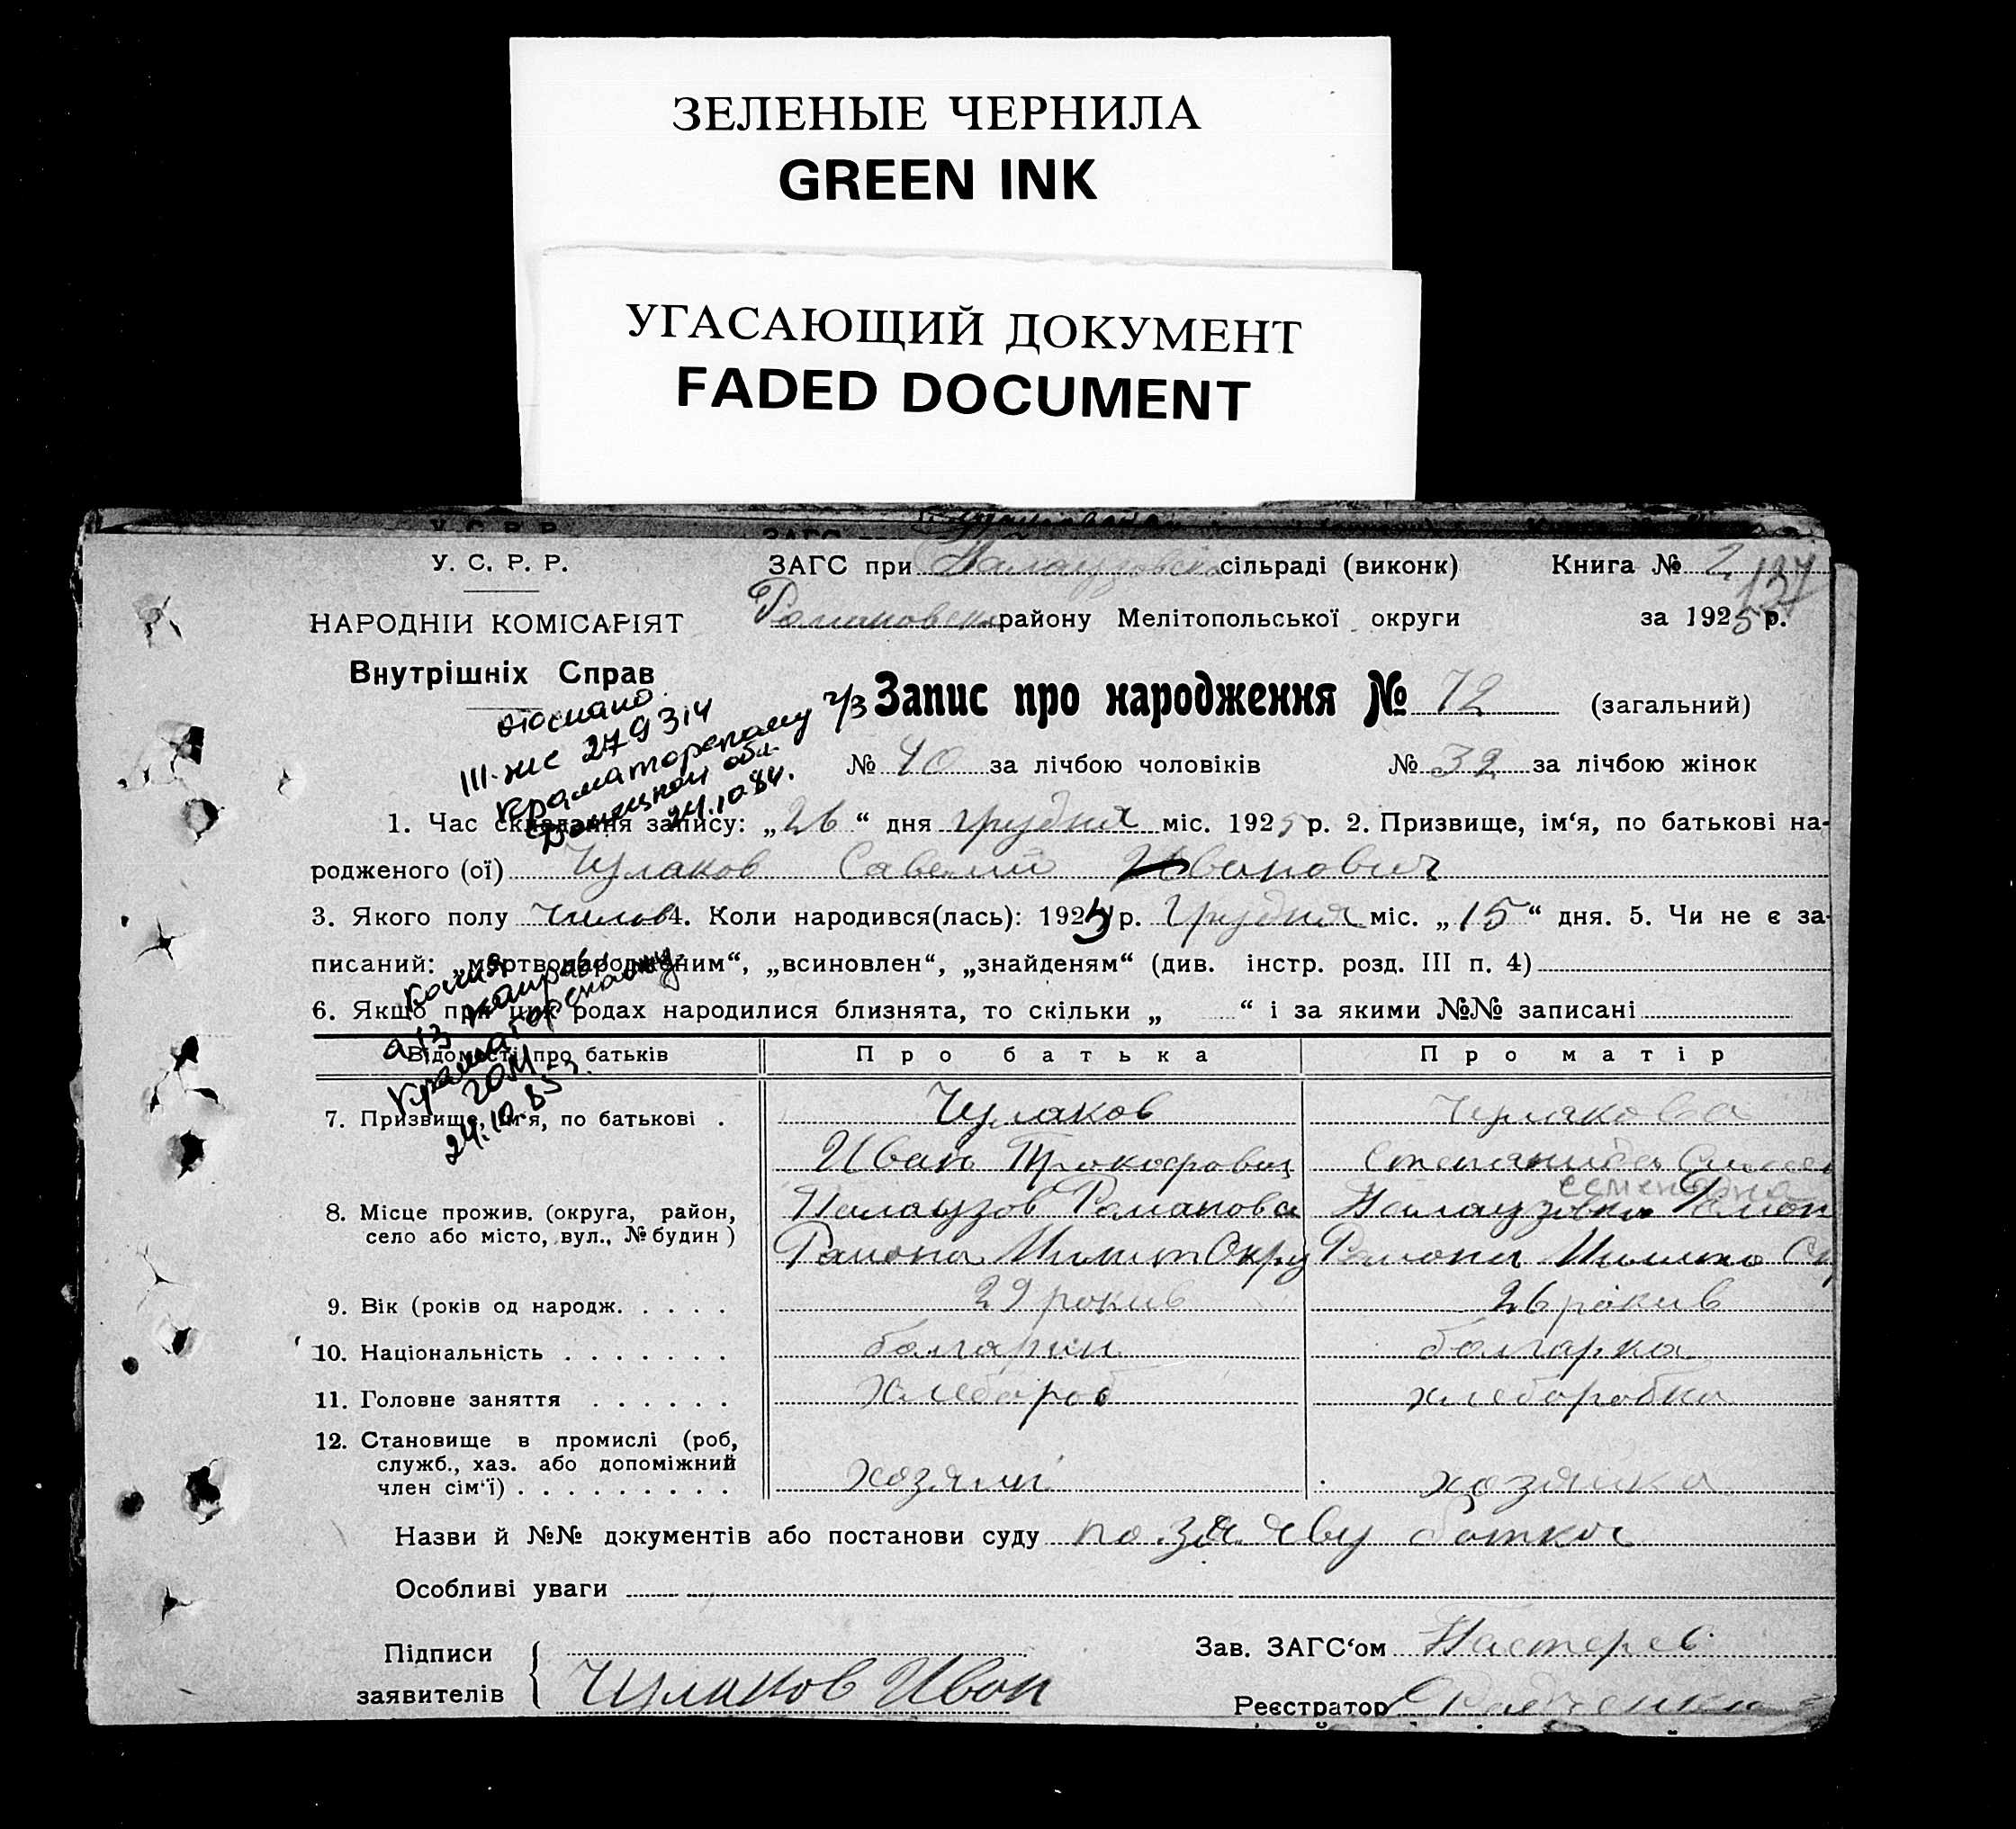 ЗЕЛЕНЫЕ ЧЕРНИЛА
GREEN INK
УГАСАЮЩИЙ ДОКУМЕНТ
FADED DOCUMENT
У. С. Р. Р.
НАРОДНІЙ КОМІСАРІЯТ
Внутрішніх Справ
ЗАГС при сільраді (виконк) Книга № 2
137
району Мелітопольської округи за 1925 р.
Запис про народження № 72 (загальний)
№ 40 за лічбою чоловіків № 32 за лічбою жінок
III-ЖС 279314
Краматорскому
Донецкой обл.
24.10.84.
1. Час складання запису: „26“ дня грудня міс. 1925 р. 2. Призвище, ім‘я, по батькові на-
родженого (ої) Чулаков Савелий Иванович
3. Якого полу 4. Коли народився(лась): 192 р. Грудня міс. „15“ дня. 5. Чи не є за-
писаний: „мертвонародженим“, „всиновлен“, „знайденям“ (див. інстр. розд. III п. 4)
6. Якщо при цих родах народилися близнята, то скільки „ “ і за якими №№ записані
24.10.85
Відомості про батьків Про батька Про матір
7. Призвище, ім‘я, по батькові . Чулаков Чулакова
Иван Прокофович Степанида
8. Місце прожив. (округа, район, село або місто, вул., № будин) Палаузов Романовск
Района Района
9. Вік (років од народж. . . . . 29 рокив 26 рокив
10. Національність . . . . . . . болгарин болгарка
11. Головне заняття . . . . . . хлебороб хлеборобка
12. Становище в промислі (роб,
служб., хаз. або допоміжний
член сім‘ї) . . . . . . . . . хозяин хозяйка
Назви й №№ документів або постанови суду по заяву батка
Особливі уваги
Підписи
заявителів Чулаков Иван
Зав. ЗАГС‘ом
Реєстратор